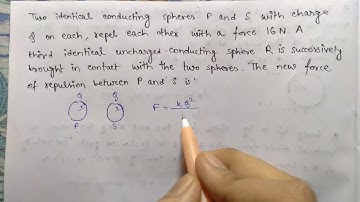 Two identical conducting spheres P and S with charge
Q on each, repel each other with a force 16N. A
third identical uncharged conducting sphere R is successively
brought in contact with the two spheres. The new force
of repulsion between P and S is:
Q Q
P S
F = kQ²